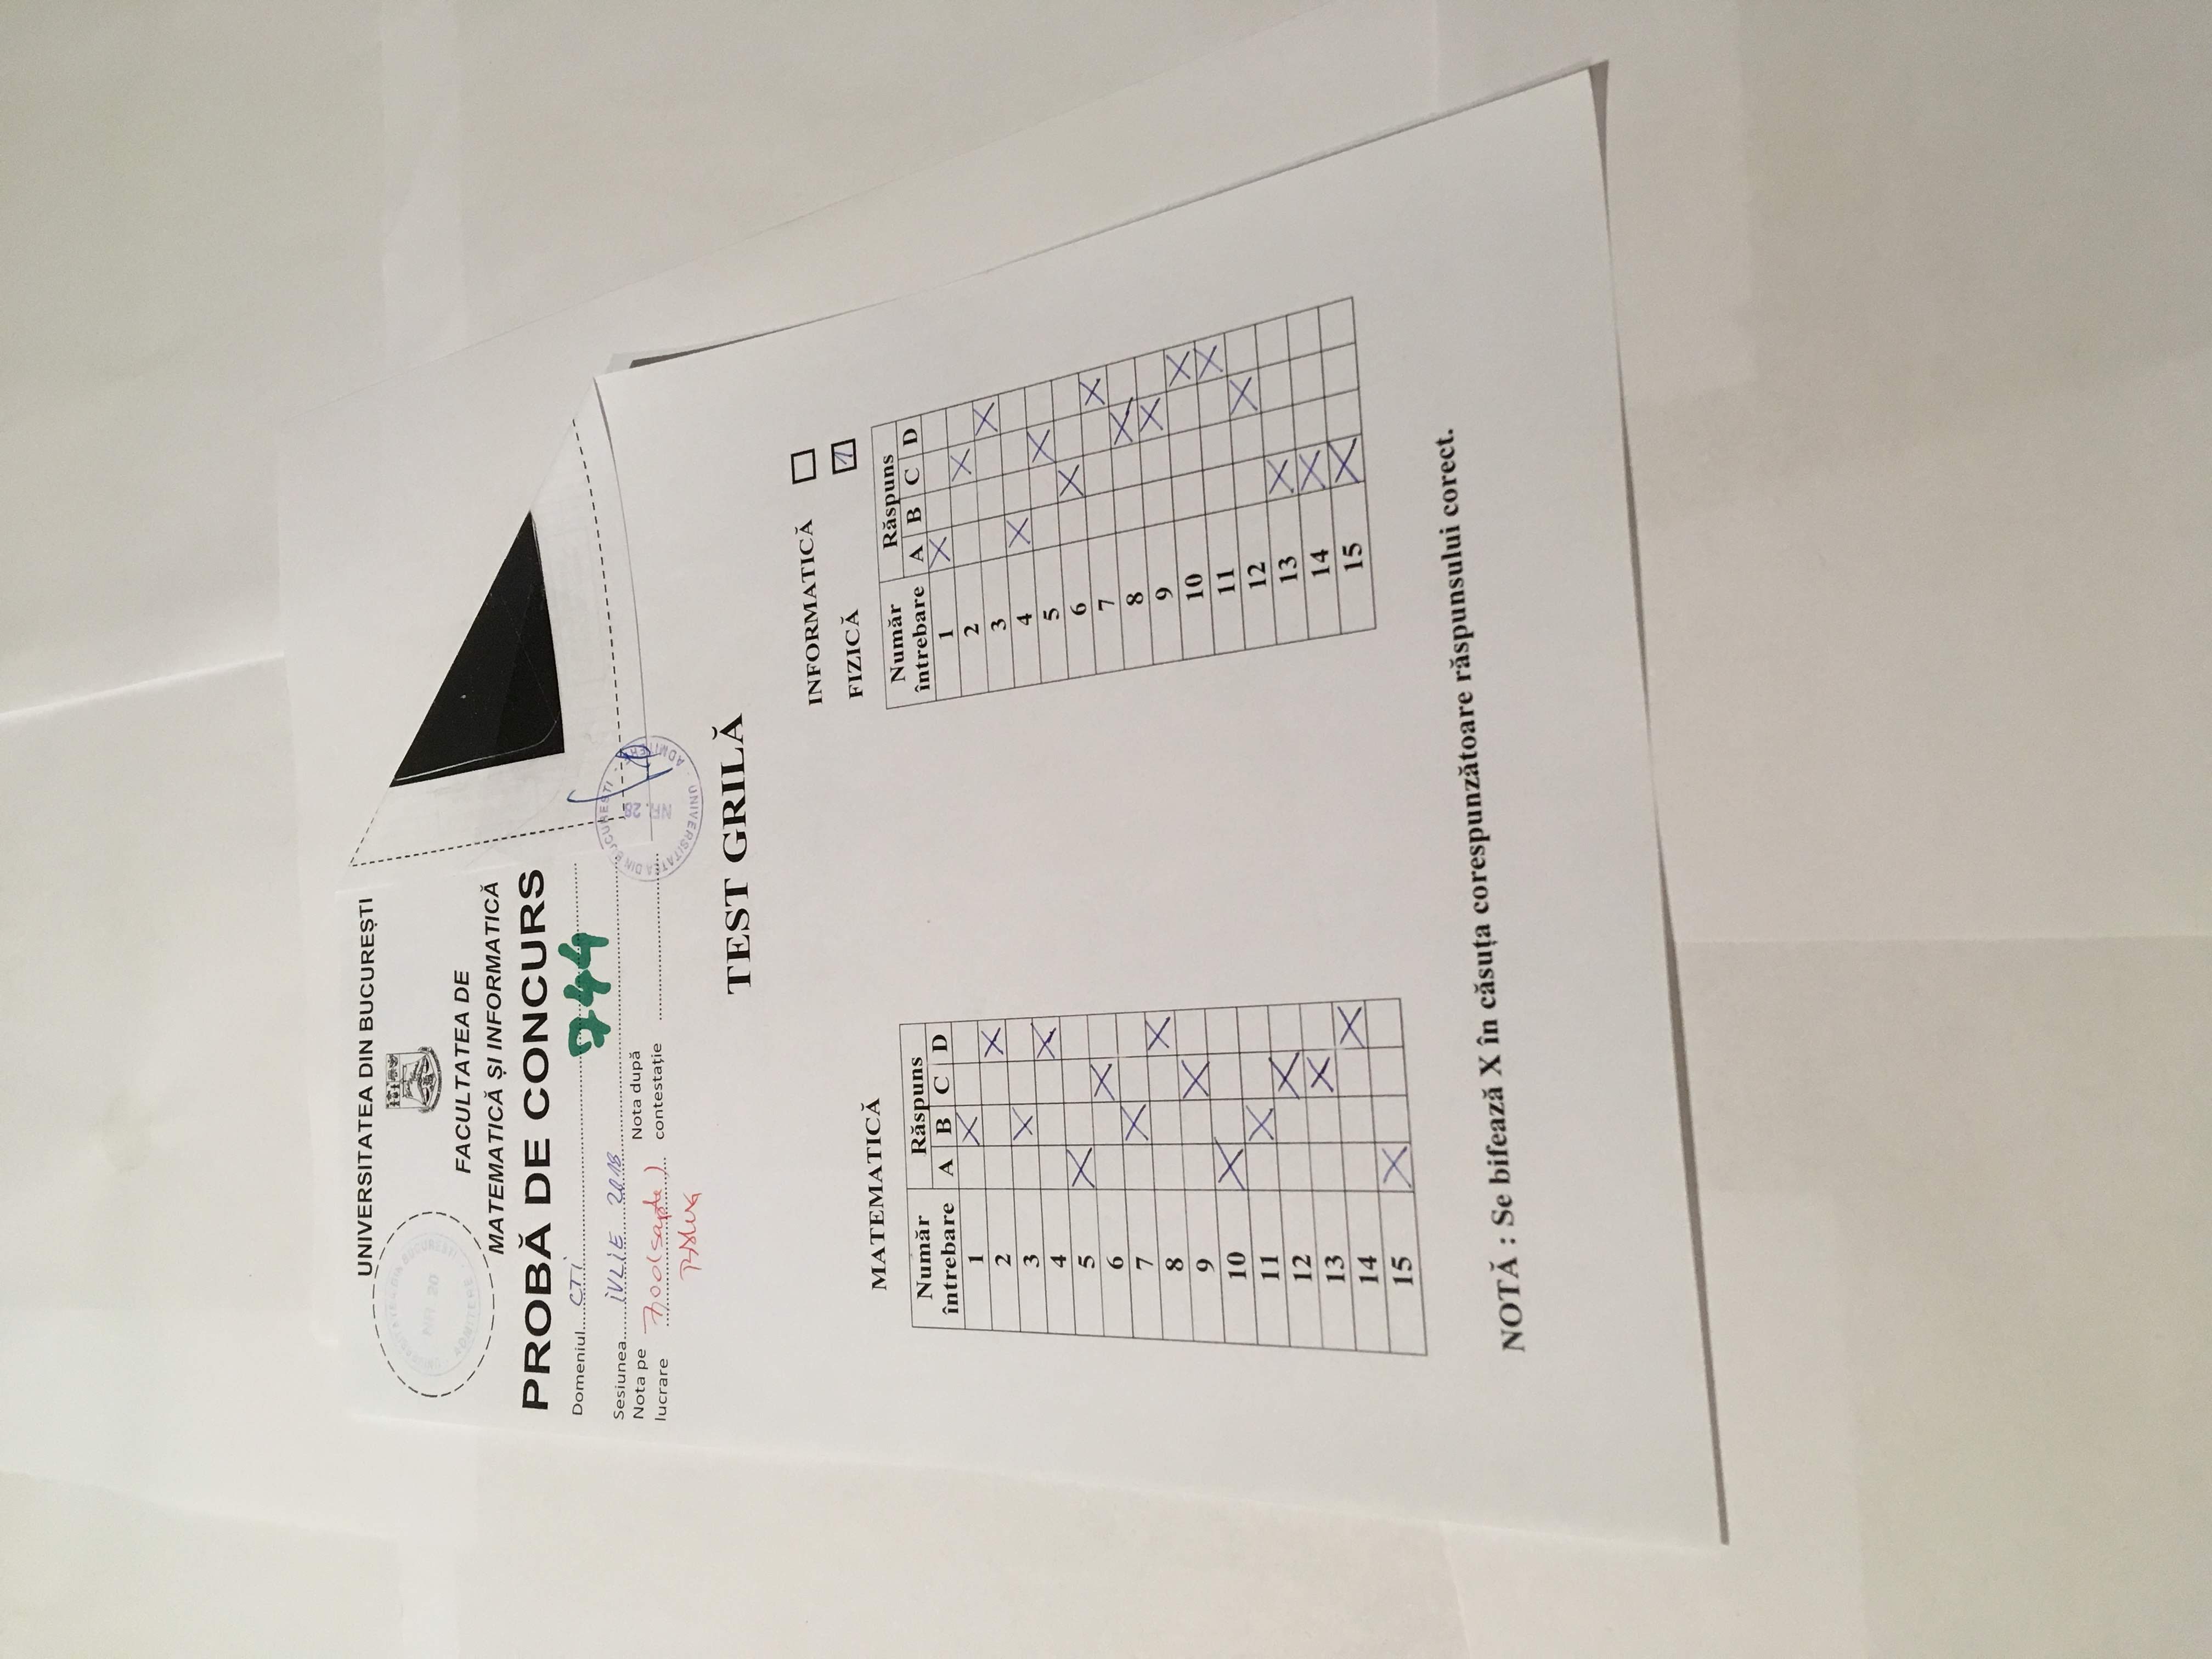 UNIVERSITATEA DIN BUCUREȘTI
UNIVERSITATEA DIN BUCUREȘTI
NR. 20
ADMITERE
FACULTATEA DE
MATEMATICĂ ȘI INFORMATICĂ
PROBĂ DE CONCURS
Domeniul....CTI
744
Sesiunea.....IULIE 2018
Nota pe lucrare 7,00 (sapte)
Nota după contestație
UNIVERSITATEA DIN BUCUREȘTI
NR. 28
ADMITERE
TEST GRILĂ
INFORMATICĂ
FIZICĂ 1
MATEMATICĂ
Număr întrebare Răspuns
A B C D
1 X
2 X
3 X
4 X
5 X
6 X
7 X
8 X
9 X
10 X
11 X
12 X
13 X
14 X
15 X
Număr întrebare Răspuns
A B C D
1 X
2 X
3 X
4 X
5 X
6 X
7 X
8 X
9 X
10 X
11 X
12 X
13 X
14 X
15 X
NOTĂ : Se bifează X în căsuța corespunzătoare răspunsului corect.